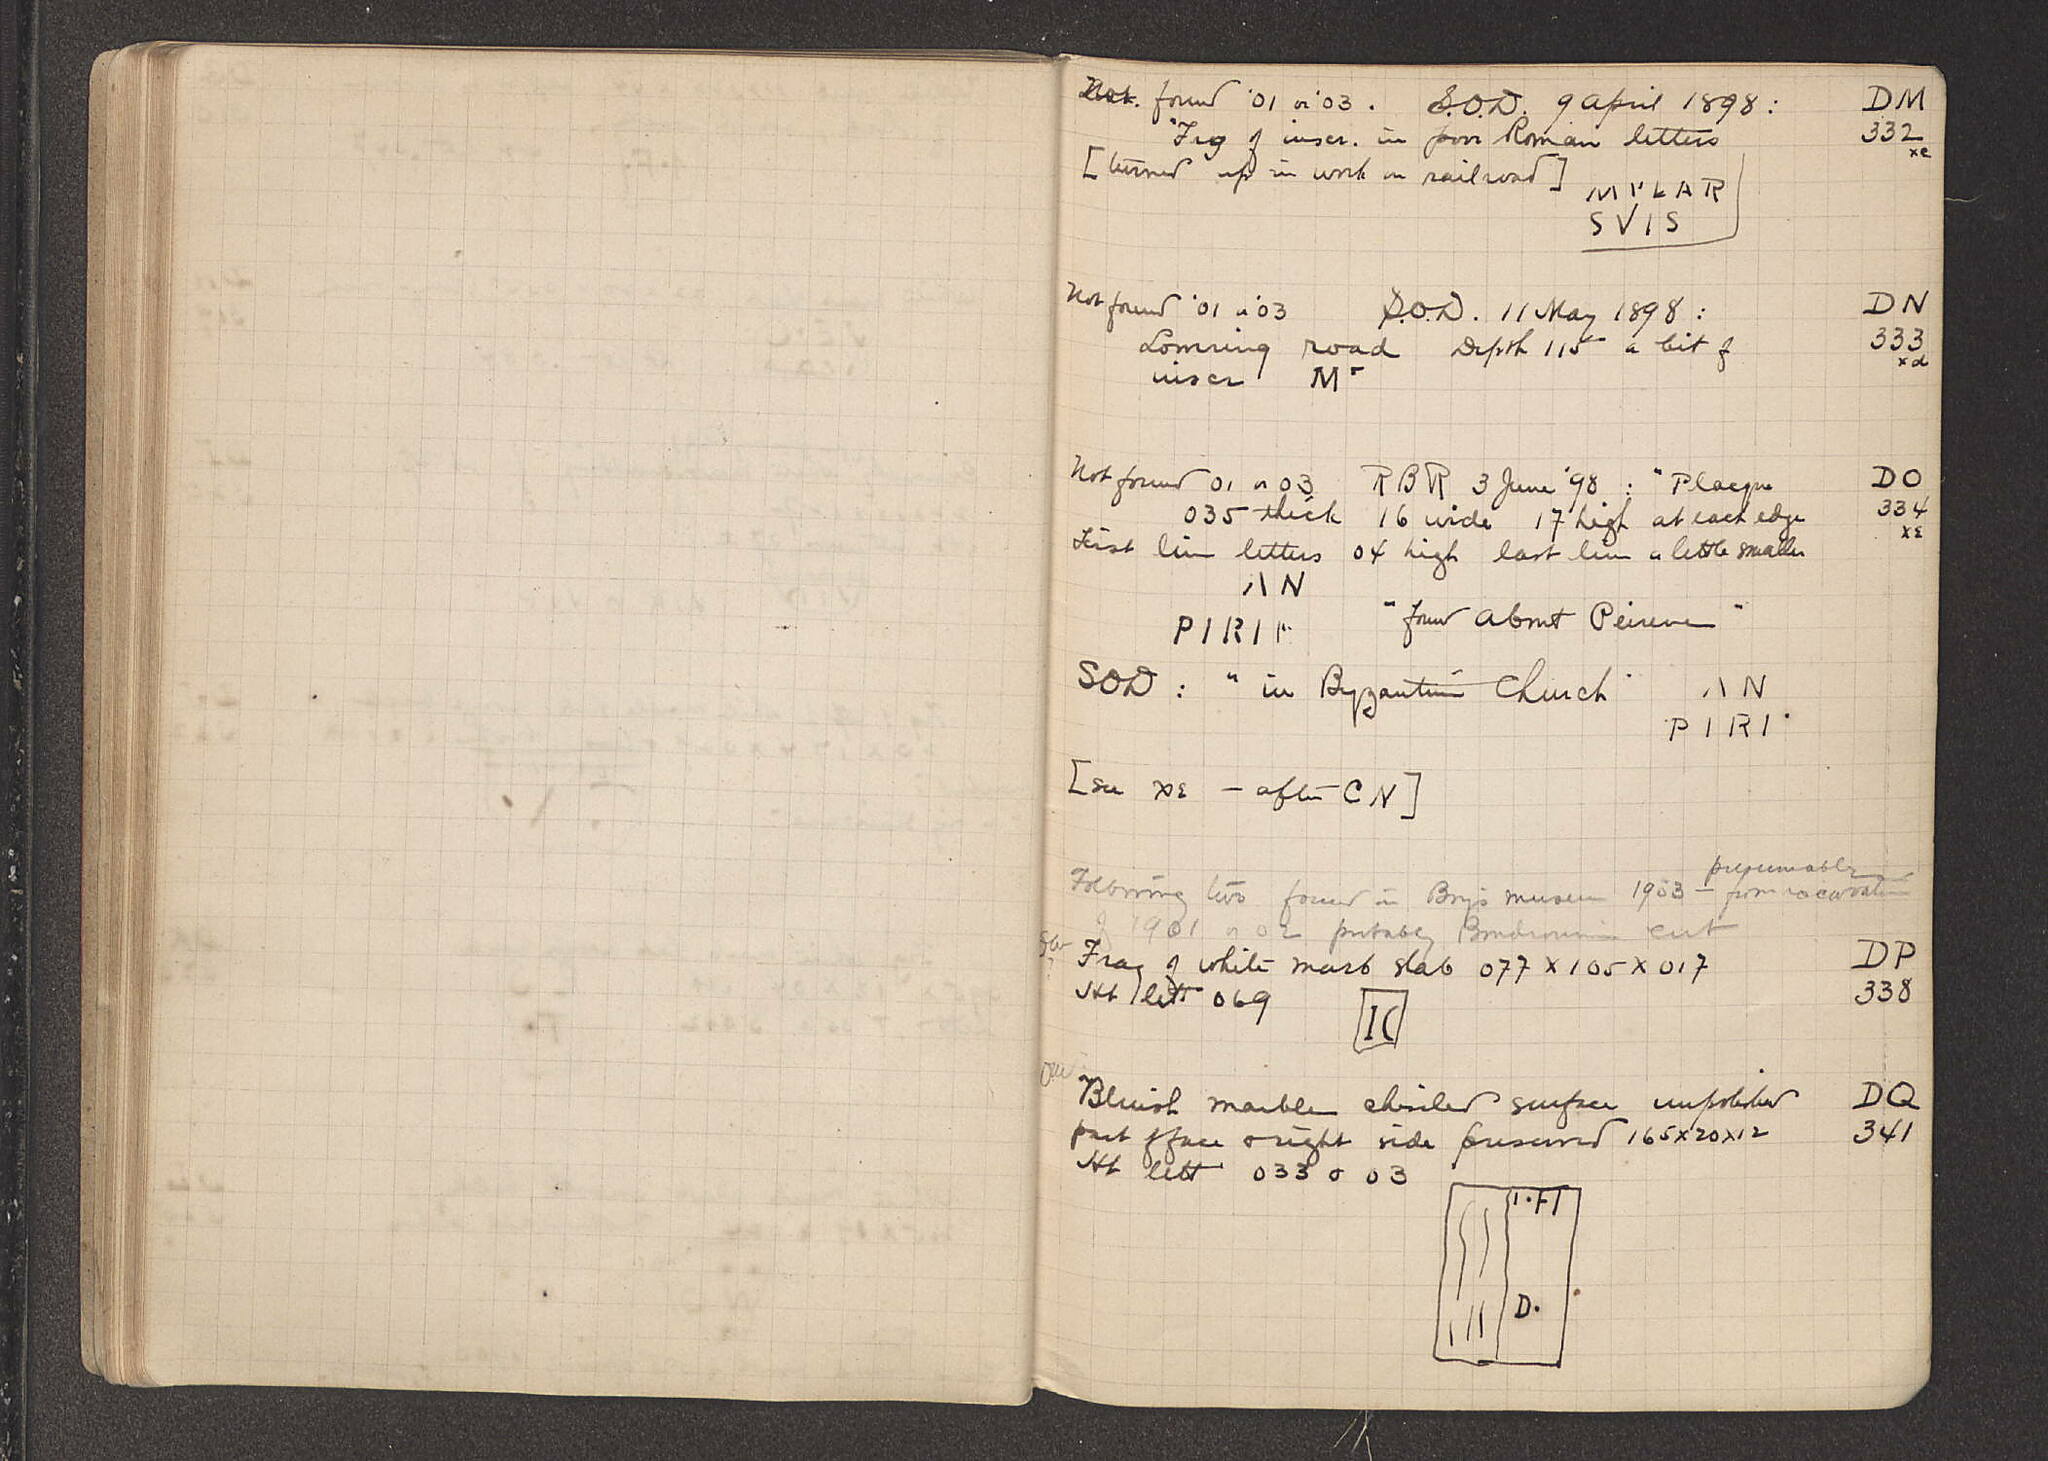 Not. found '01 or '03. S.O.D. 9 April 1898: DM
"Frg of inscr. in poor Roman letters 332
xe
[turned up in work on railroad]
MVLAR
SVIS
Not found '01 or '03 S.O.D. 11 May 1898: DN
Lowering road Depth 115 a bit of 333
xd
inscr M
Not found 01 or 03 RBR 3 June '98: "Placque DO
035 thick 16 wide 17 high at each edge 334
xε
First line letters 04 high last line a little smaller
ΛN
PIRIF "found about Peirene"
SOD: "in Byzantine Church" ΛN
PIRI
[see xε – after CN]
presumably
Following two found in Brijs museum 1903 – from excavation
of 1901 or 02 probably cut
Frag of white marb slab 077 x 105 x 017 DP
Ht lett 069 338
IC
Bluish marble chiseled surface unpolished DQ
part of face & right side preserved 165x20x12 341
Ht lett 033 & 03
I·FI
D·